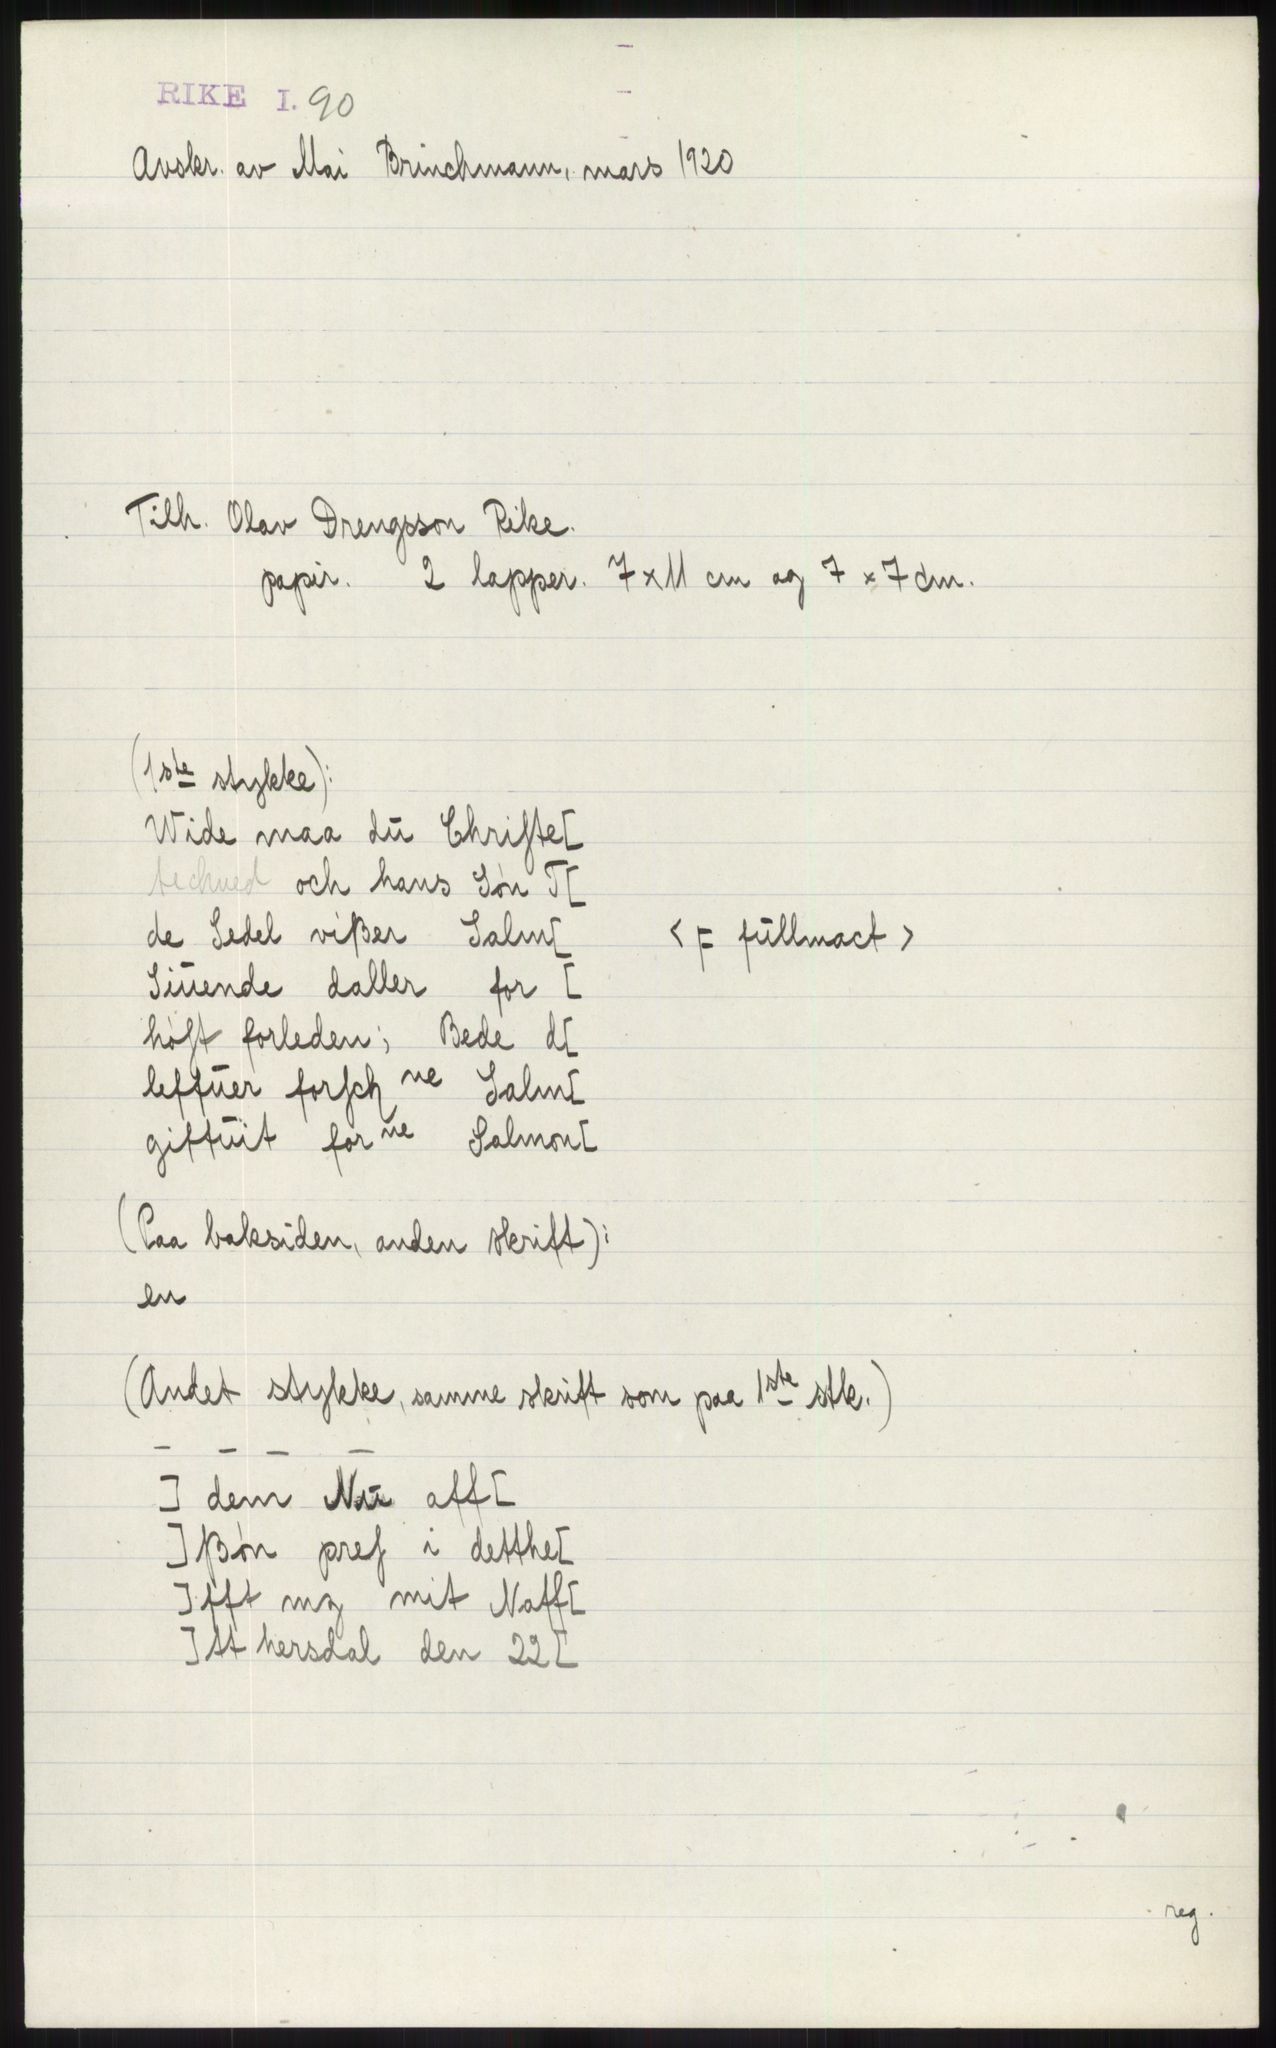 RIKE I. 90
Avskr. av Mai Brinchmann, mars 1920
Tilh. Olav Drengsson Rike.
papir. 2 lapper. 7 x 11 cm og 7 x 7 cm.
(1ste stykke):
Wide maa dū Chriſte[
techned och hans Søn T[
de Sedel vißer Salm[ < ɔ: fūllmact >
Siūende daller for [
høſt forleden; Bede d[
leffūer forſch ne Salm[
giffūit for ne Salmon[
(Paa baksiden, anden skrift):
en
(Andet stykke, samme skrift som paa 1ste stk.)
– – – –
] dem Nū aff[
]ßøn preſ i detthe[
]fft mz mit Naff[
]tt hersdal den 22[
reg.